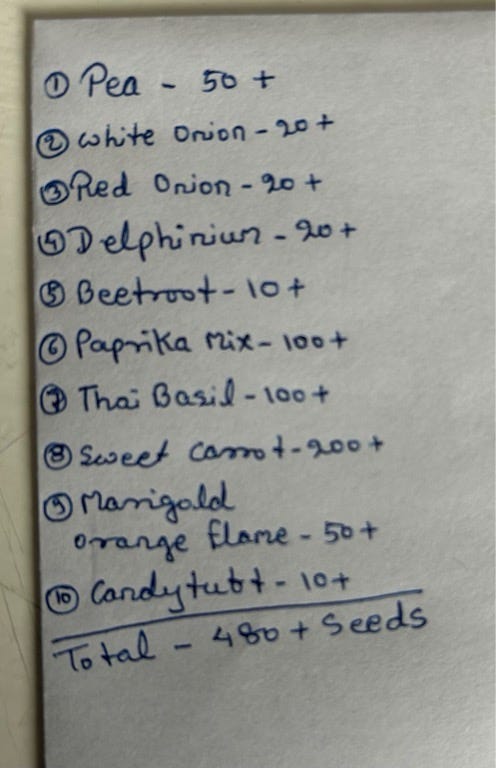 ① Pea - 50 +
② White Onion - 20 +
③ Red Onion - 20 +
④ Delphinium - 20 +
⑤ Beetroot - 10 +
⑥ Paprika Mix - 100 +
⑦ Thai Basil - 100 +
⑧ Sweet Carrot - 200 +
⑨ Marigold
orange flame - 50 +
⑩ Candytuft - 10 +
Total - 480 + Seeds